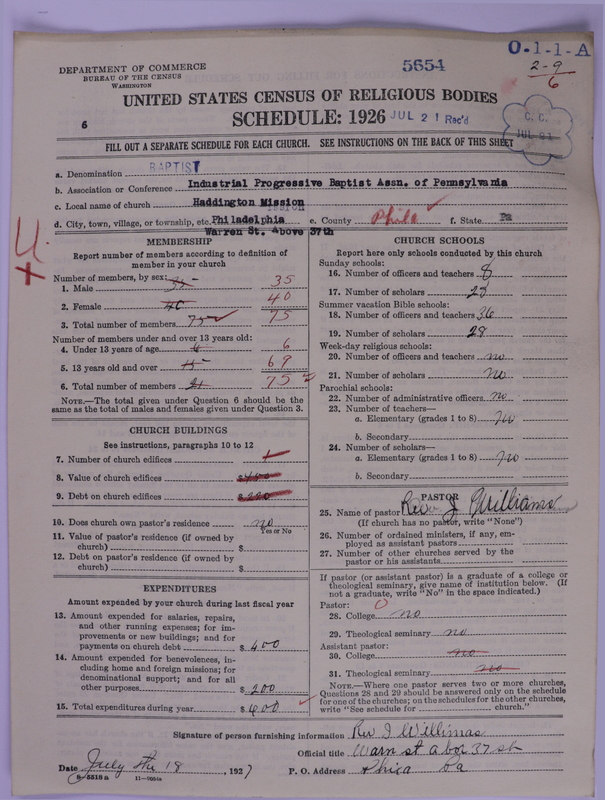 DEPARTMENT OF COMMERCE
BUREAU OF THE CENSUS
WASHINGTON
5654
0-1-1-A
2-9
6
UNITED STATES CENSUS OF RELIGIOUS BODIES
6
SCHEDULE: 1926
JUL 21 Rec'd
C. C.
JUL 21
FILL OUT A SEPARATE SCHEDULE FOR EACH CHURCH. SEE INSTRUCTIONS ON THE BACK OF THIS SHEET
a. Denomination BAPTIST
b. Association or Conference Industrial Progressive Baptist Assn. of Pennsylvania
c. Local name of church Haddington Mission
d. City, town, village, or township, etc. Philadelphia e. County Phila f. State Pa
Warren St. Above 37th
MEMBERSHIP
Report number of members according to definition of
member in your church
Number of members, by sex:
1. Male 35 35
2. Female 40 40
3. Total number of members 75 75
Number of members under and over 13 years old:
4. Under 13 years of age 6 6
5. 13 years old and over 15 69
6. Total number of members 21 75
NOTE.—The total given under Question 6 should be
same as the total of males and females given under Question 3.
CHURCH BUILDINGS
See instructions, paragraphs 10 to 12
7. Number of church edifices 1
8. Value of church edifices
9. Debt on church edifices
10. Does church own pastor's residence no
Yes or No
11. Value of pastor's residence (if owned by
church) $
12. Debt on pastor's residence (if owned by
church) $
EXPENDITURES
Amount expended by your church during last fiscal year
13. Amount expended for salaries, repairs,
and other running expenses; for im-
provements or new buildings; and for
payments on church debt $ 400
14. Amount expended for benevolences, in-
cluding home and foreign missions; for
denominational support; and for all
other purposes $ 200
15. Total expenditures during year $ 600
CHURCH SCHOOLS
Report here only schools conducted by this church
Sunday schools:
16. Number of officers and teachers 8
17. Number of scholars 28
Summer vacation Bible schools:
18. Number of officers and teachers 36
19. Number of scholars 28
Week-day religious schools:
20. Number of officers and teachers no
21. Number of scholars no
Parochial schools:
22. Number of administrative officers no
23. Number of teachers—
a. Elementary (grades 1 to 8) no
b. Secondary
24. Number of scholars—
a. Elementary (grades 1 to 8) no
b. Secondary
PASTOR
25. Name of pastor Rev. J Williams
(If church has no pastor, write "None")
26. Number of ordained ministers, if any, em-
ployed as assistant pastors
27. Number of other churches served by the
pastor or his assistants
If pastor (or assistant pastor) is a graduate of a college or
theological seminary, give name of institution below. (If
not a graduate, write "No" in the space indicated.)
Pastor: 0
28. College no
29. Theological seminary no
Assistant pastor:
30. College no
31. Theological seminary no
NOTE.—Where one pastor serves two or more churches,
Questions 28 and 29 should be answered only on the schedule
for one of the churches; on the schedules for the other churches,
write "See schedule for church."
Signature of person furnishing information Rev J Willimas
Official title Warn st abov 37 st
Date July the 18, 1927 P. O. Address Phica Pa
8-5518a 11-9054a